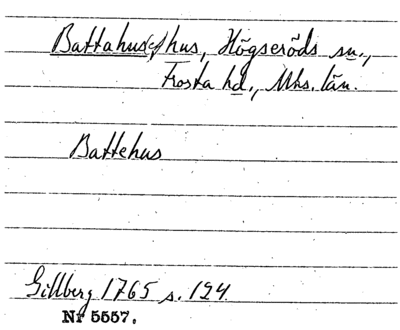 Battahus(et) hus, Högseröds sn.,
Frosta hd., Mhs. län.
Battehus
Gillberg 1765 s. 124.
Nr 5557.